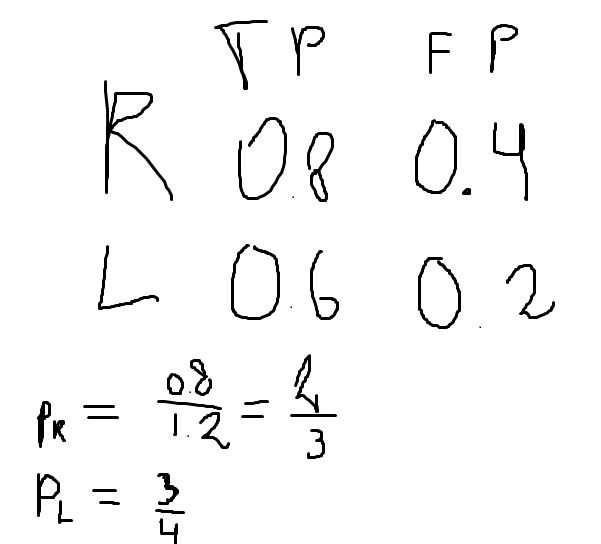 TP FP
R 0.8 0.4
L 0.6 0.2
PR = 0.8/1.2 = 2/3
PL = 3/4